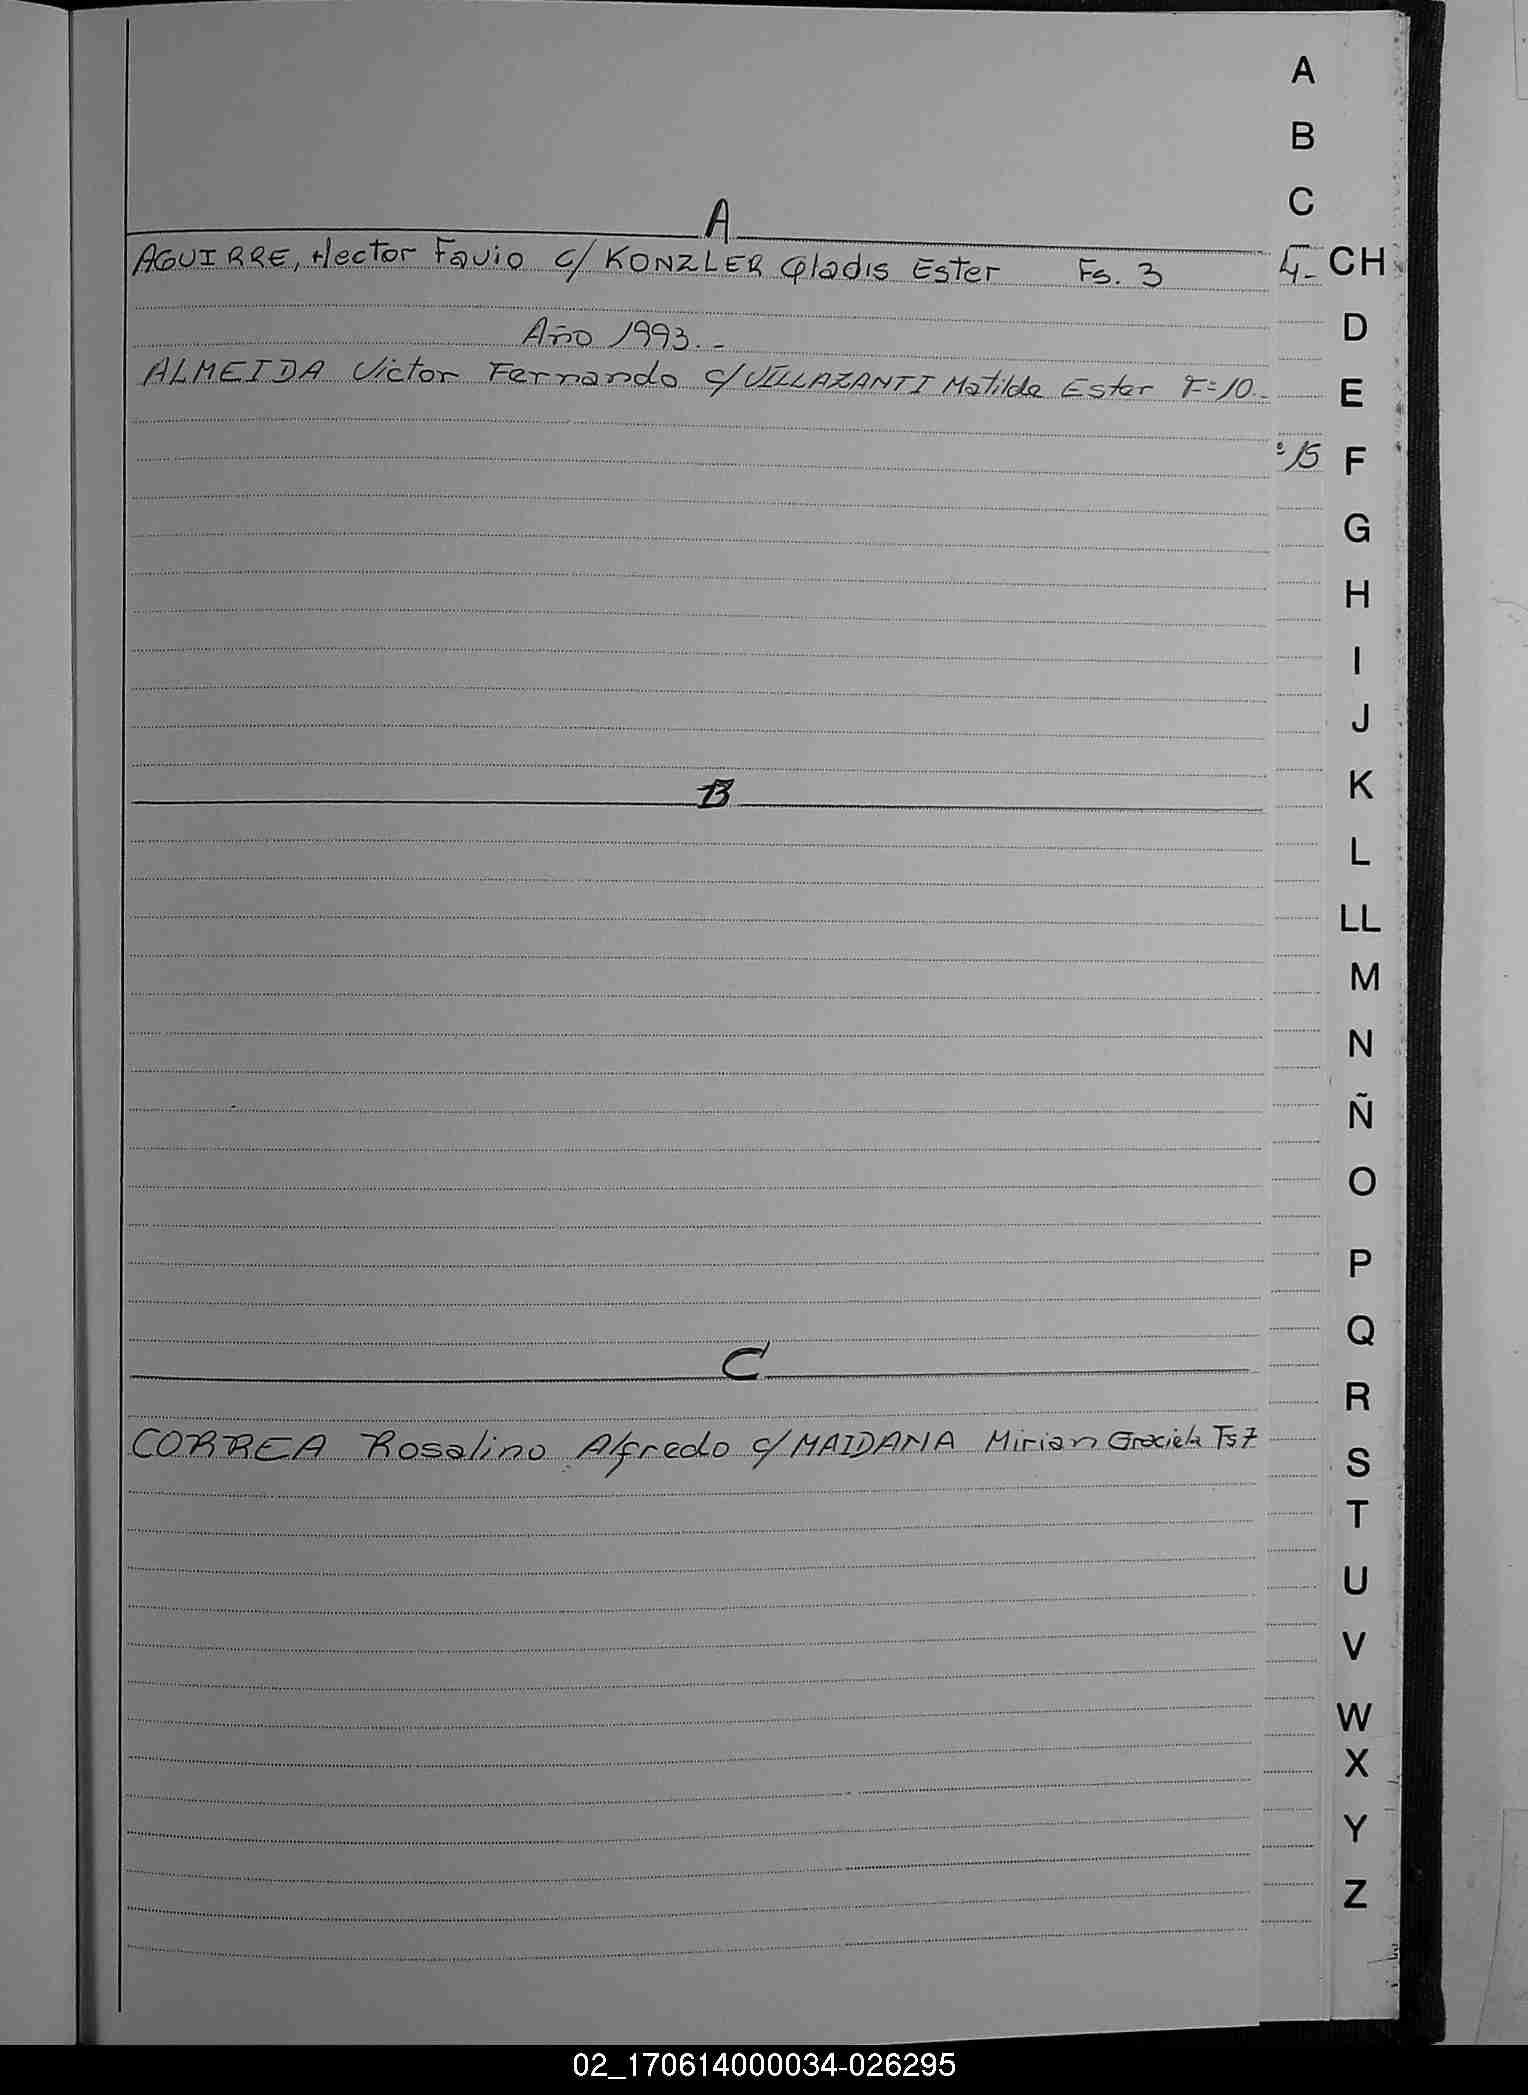 A
B
C
A
AGUIRRE, Hector Favio c/ KONZLER Gladis Ester Fs. 3
4- CH
D
Año 1993.-
ALMEIDA Victor Fernando c/ VILLAZANTI Matilde Ester F=10.-
E
15 F
G
H
I
J
K
B
L
LL
M
N
Ñ
O
P
Q
C
R
CORREA Rosalino Alfredo c/ MAIDANA Mirian Graciela Fs 7
S
T
U
V
W
X
Y
Z
02_170614000034-026295